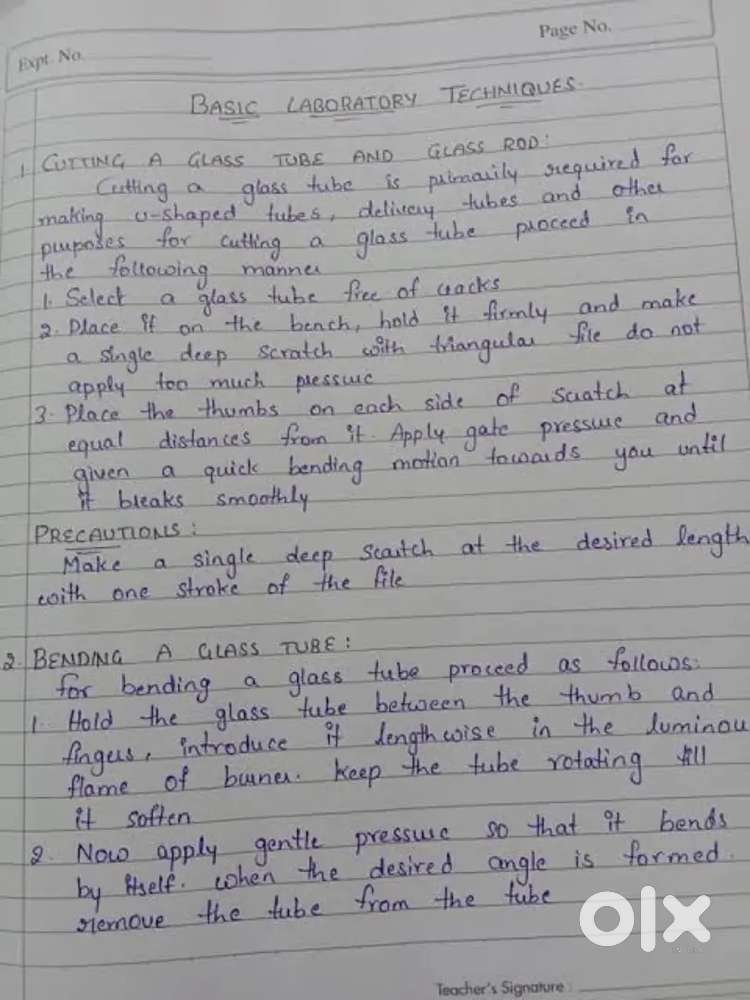 Expt. No.
Page No.
BASIC LABORATORY TECHNIQUES.
1. CUTTING A GLASS TUBE AND GLASS ROD:
Cutting a glass tube is primarily required for
making U-shaped tubes, delivery tubes and other
purposes for cutting a glass tube proceed in
the following manner
1. Select a glass tube free of cracks
2. Place it on the bench, hold it firmly and make
a single deep scratch with triangular file do not
apply too much pressure
3. Place the thumbs on each side of scratch at
equal distances from it. Apply gate pressure and
given a quick bending motion towards you until
it breaks smoothly
PRECAUTIONS:
Make a single deep scartch at the desired length
with one stroke of the file
2. BENDING A GLASS TUBE:
for bending a glass tube proceed as follows:
1. Hold the glass tube between the thumb and
fingers, introduce it lengthwise in the luminou
flame of burner. Keep the tube rotating till
it soften
2. Now apply gentle pressure so that it bends
by itself. when the desired angle is formed.
remove the tube from the tube
olx
Teacher's Signature :